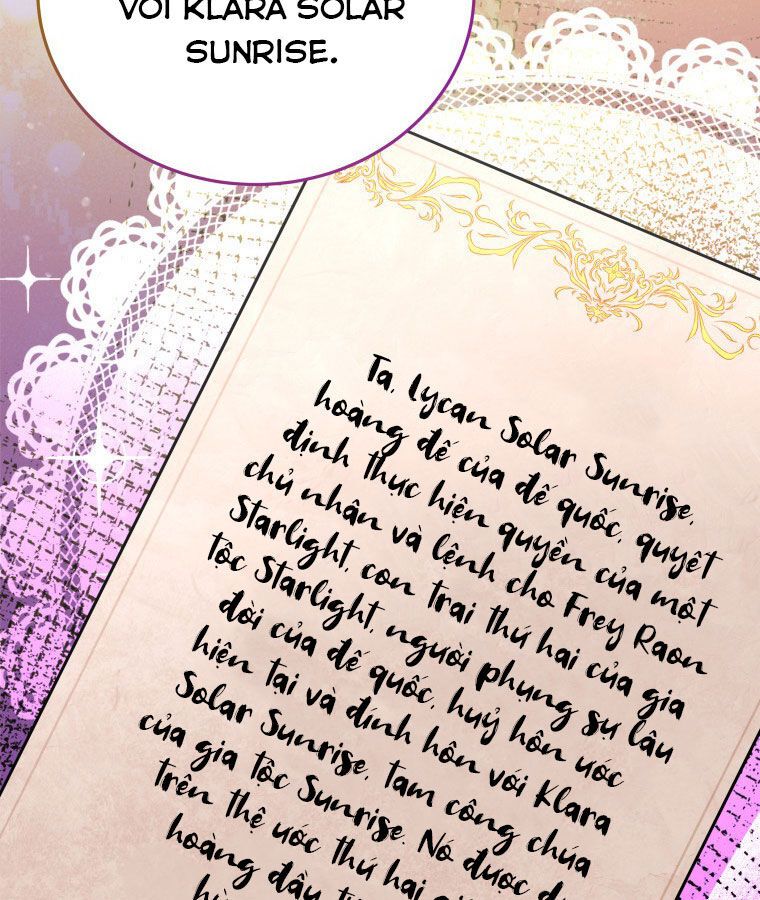 VỚI KLARA SOLAR
SUNRISE.
Ta, Lycan Solar Sunrise,
hoàng đế của đế quốc, quyết
định thực hiện quyền của một
chủ nhân và lệnh cho Frey Raon
Starlight, con trai thứ hai của gia
tộc Starlight, người phụng sự lâu
đời của đế quốc, huỷ hôn ước
hiện tại và đính hôn với Klara
Solar Sunrise, tam công chúa
của gia tộc Sunrise. Nó được
trên thệ ước thứ hai
hoàng đầu